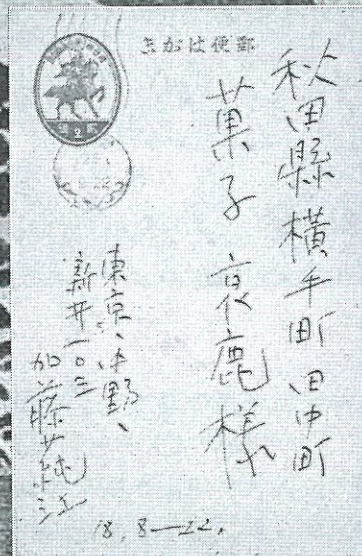 郵便はがき
秋田縣横手町田中町
菓子哀鹿様
東京、中野、
新井一〇三
加藤蒓江
18.8—22.